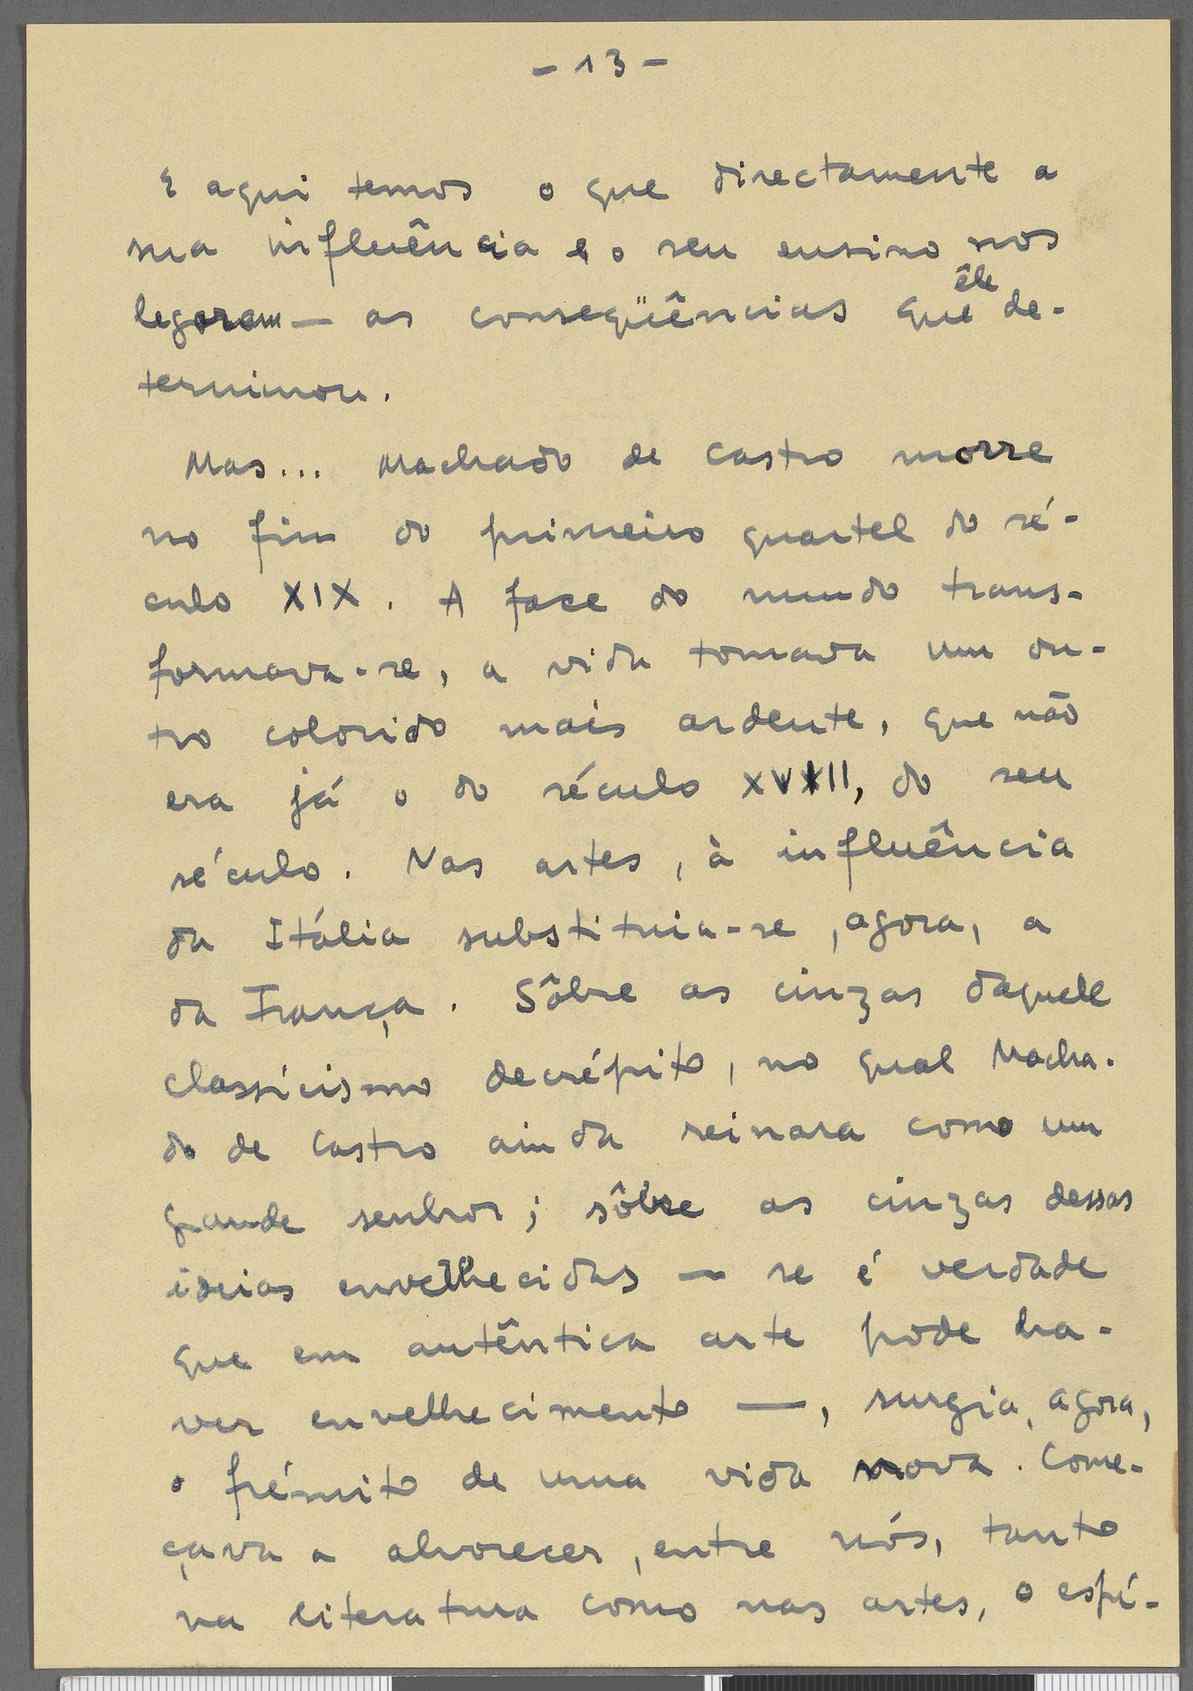 - 13 -
E aqui temos o que directamente a
sua influência e o seu ensino nos
êle
legaram — as conseqüências que de-
terminou.
Mas... Machado de Castro morre
no fim do primeiro quartel do sé-
culo XIX. A face do mundo trans-
formava-se, a vida tomava um ou-
tro colorido mais ardente, que não
era já o do século XVIII, do seu
século. Nas artes, à influência
da Itália substituia-se, agora, a
da França. Sôbre as cinzas daquele
classicismo decrépito, no qual Macha-
do de Castro ainda reinara como um
grande senhor; sôbre as cinzas dessas
ideias envelhecidas — se é verdade
que em autêntica arte pode ha-
ver envelhecimento —, surgia, agora,
o frémito de uma vida nova. Come-
çava a alvorecer, entre nós, tanto
na literatura como nas artes, o espí-